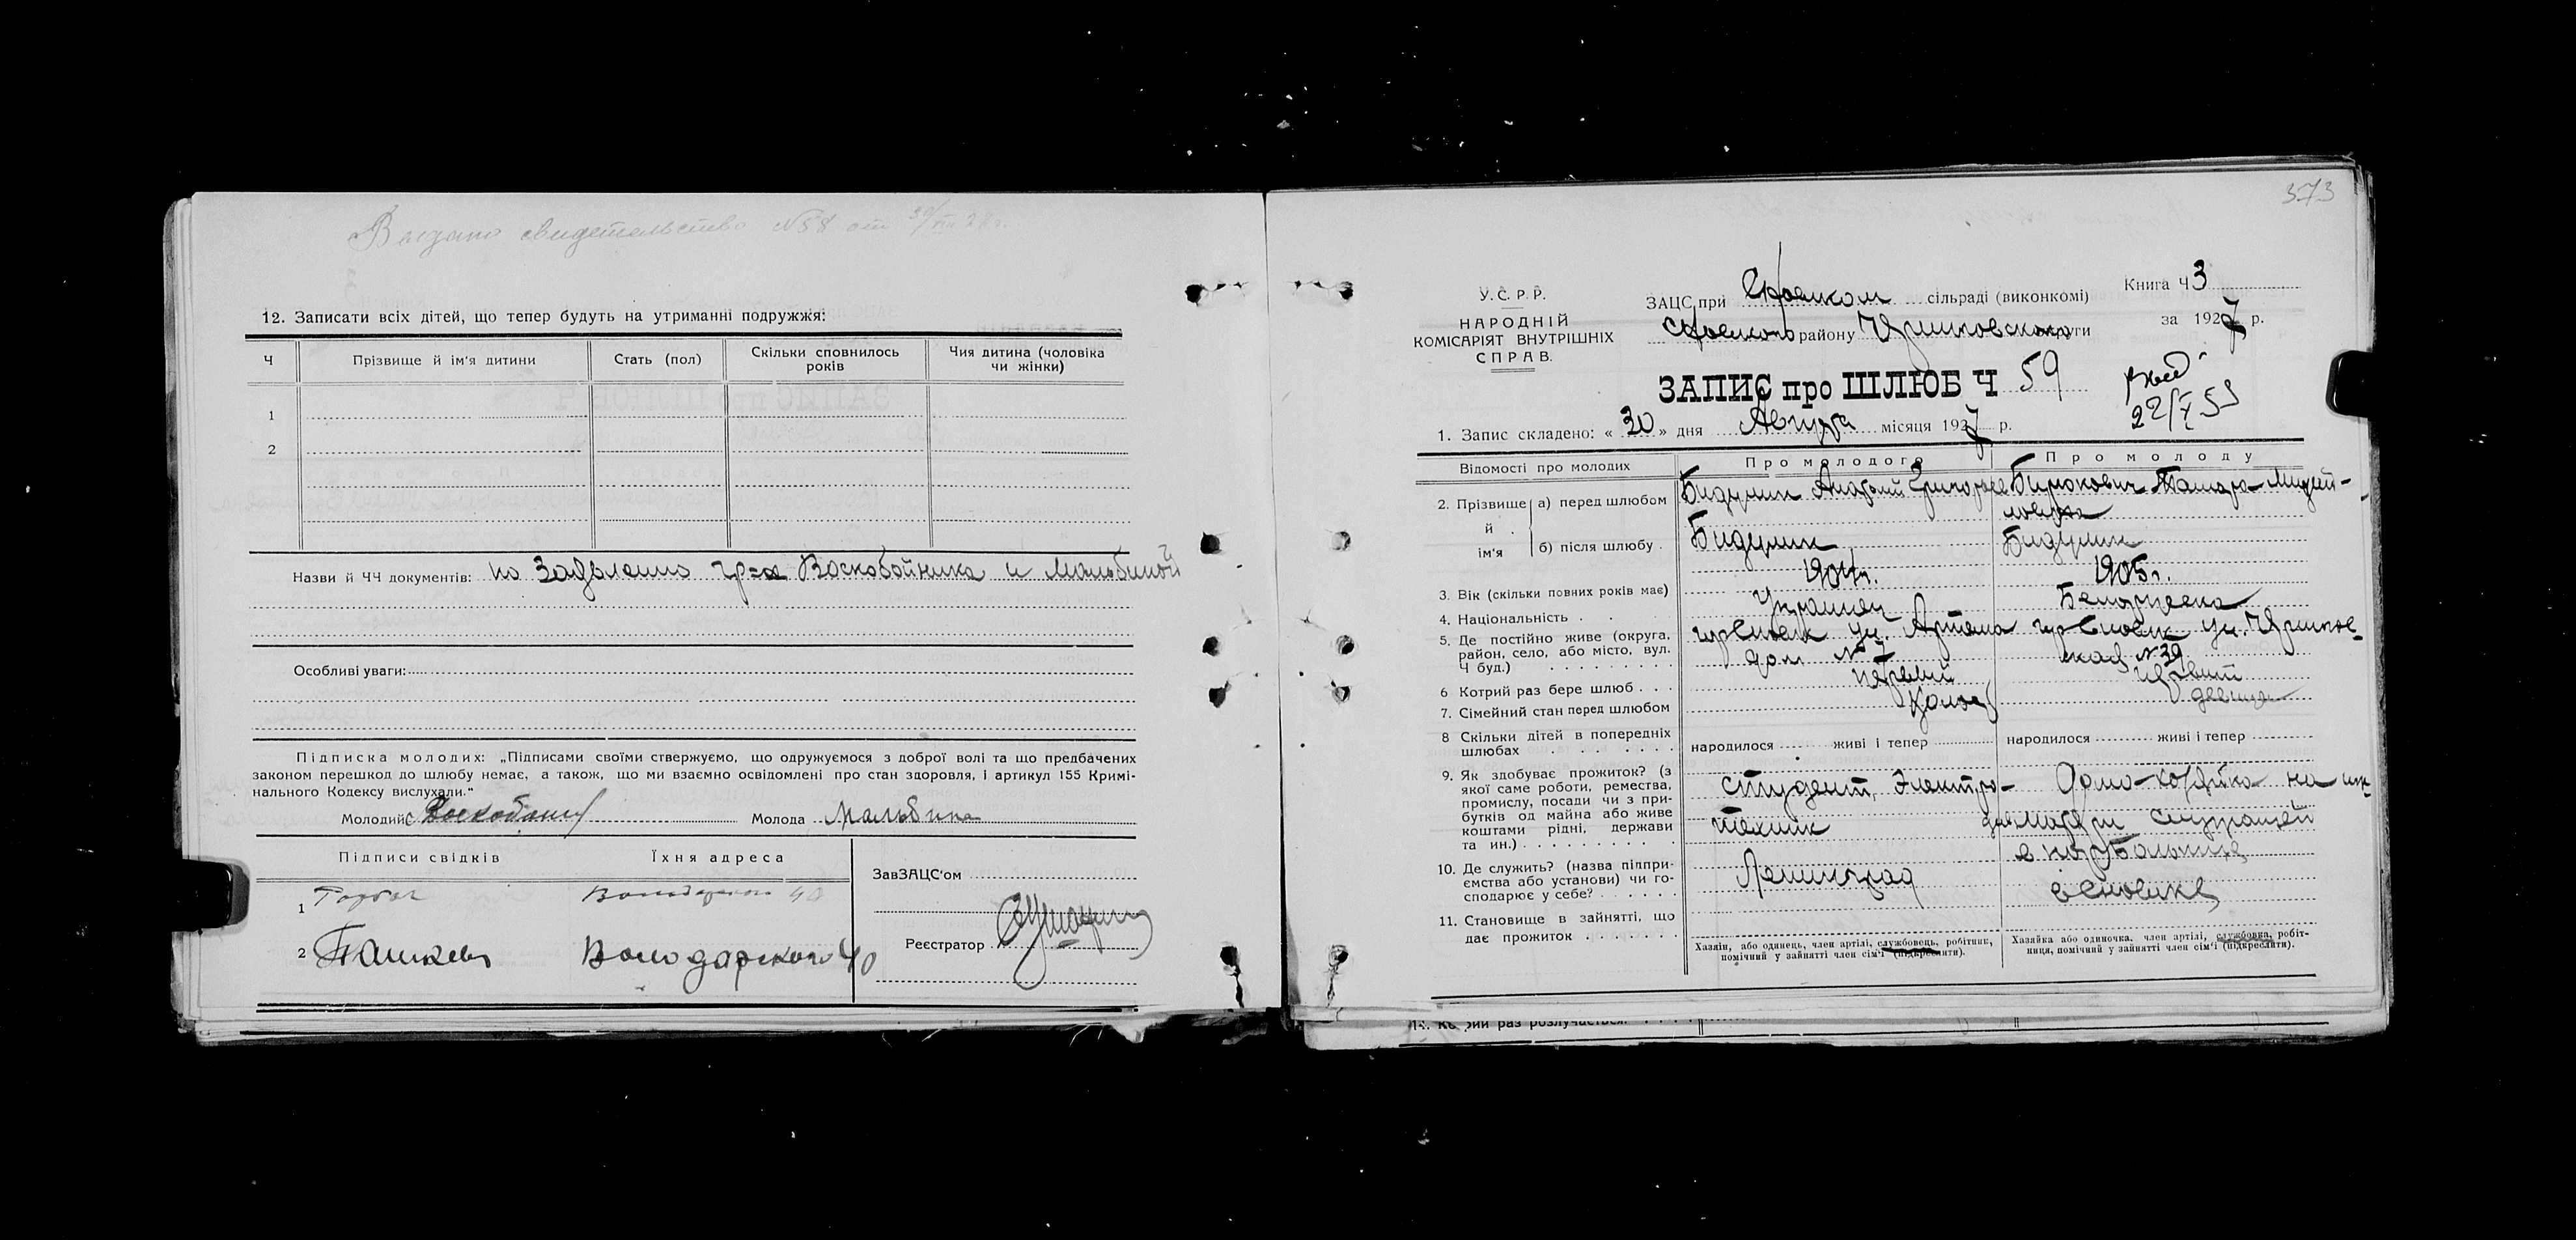 Выдано свидетельство №58 от 30/VIII 27 г.
12. Записати всіх дітей, що тепер будуть на утриманні подружжя:
Ч Прізвище й ім'я дитини Стать (пол) Скільки сповнилось років Чия дитина (чоловіка чи жінки)
1
2
Назви й ЧЧ документів: Воскобойника и Мальбиной
Особливі уваги:
Підписка молодих: „Підписами своїми ствержуємо, що одружуємося з доброї волі та що предбачених
законом перешкод до шлюбу немає, а також, що ми взаємно освідомлені про стан здоровля, і артикул 155 Кримі-
нального Кодексу вислухали.“
Молодий Молода Мальбина
Підписи свідків Їхня адреса
ЗавЗАЦС'ом
1 Горбач Володарского 40
Реєстратор
2 Володарского 40
373
У.С.Р.Р.
НАРОДНІЙ
КОМІСАРІЯТ ВНУТРІШНІХ
СПРАВ.
ЗАЦС при сільраді (виконкомі)
району округи
Книга Ч 3
за 1927 р.
ЗАПИС про ШЛЮБ Ч 59
22/V 53
1. Запис складено: « 30 » дня Августа місяця 1927 р.
Відомості про молодих Про молодого Про молоду
2. Прізвище й ім'я а) перед шлюбом Григорьев Бирюкович Тамара Михай-
ловна
б) після шлюбу
3. Вік (скільки повних років має) 1904 г. 1905 г.
4. Національність Украинец Белорусска
5. Де постійно живе (округа, район, село, або місто, вул. Ч буд.) гор Сновск ул. Артема дом № 7 гор Сновск ул. № 39
6 Котрий раз бере шлюб первый первый
7. Сімейний стан перед шлюбом Холост девица
8 Скільки дітей в попередніх шлюбах народилося живі і тепер народилося живі і тепер
9. Як здобуває прожиток? (з якої саме роботи, ремества, промислу, посади чи з прибутків од майна або живе коштами рідні, держави та ин.) Студент, Электро-
техник Домо-хозяйка на иж-
матери служащей
10. Де служить? (назва підприємства або установи) чи господарює у себе? Ленинград в Сновске
11. Становище в зайнятті, що дає прожиток
Хазяїн, або одинець, член артілі, службовець, робітник, помічний у зайнятті член сім'ї (підкреслити).
Хазяйка або одиночка, член артілі, службовка, робітниця, помічний у зайнятті член сім'ї (підкреслити).
14. Котрий раз розлучається.